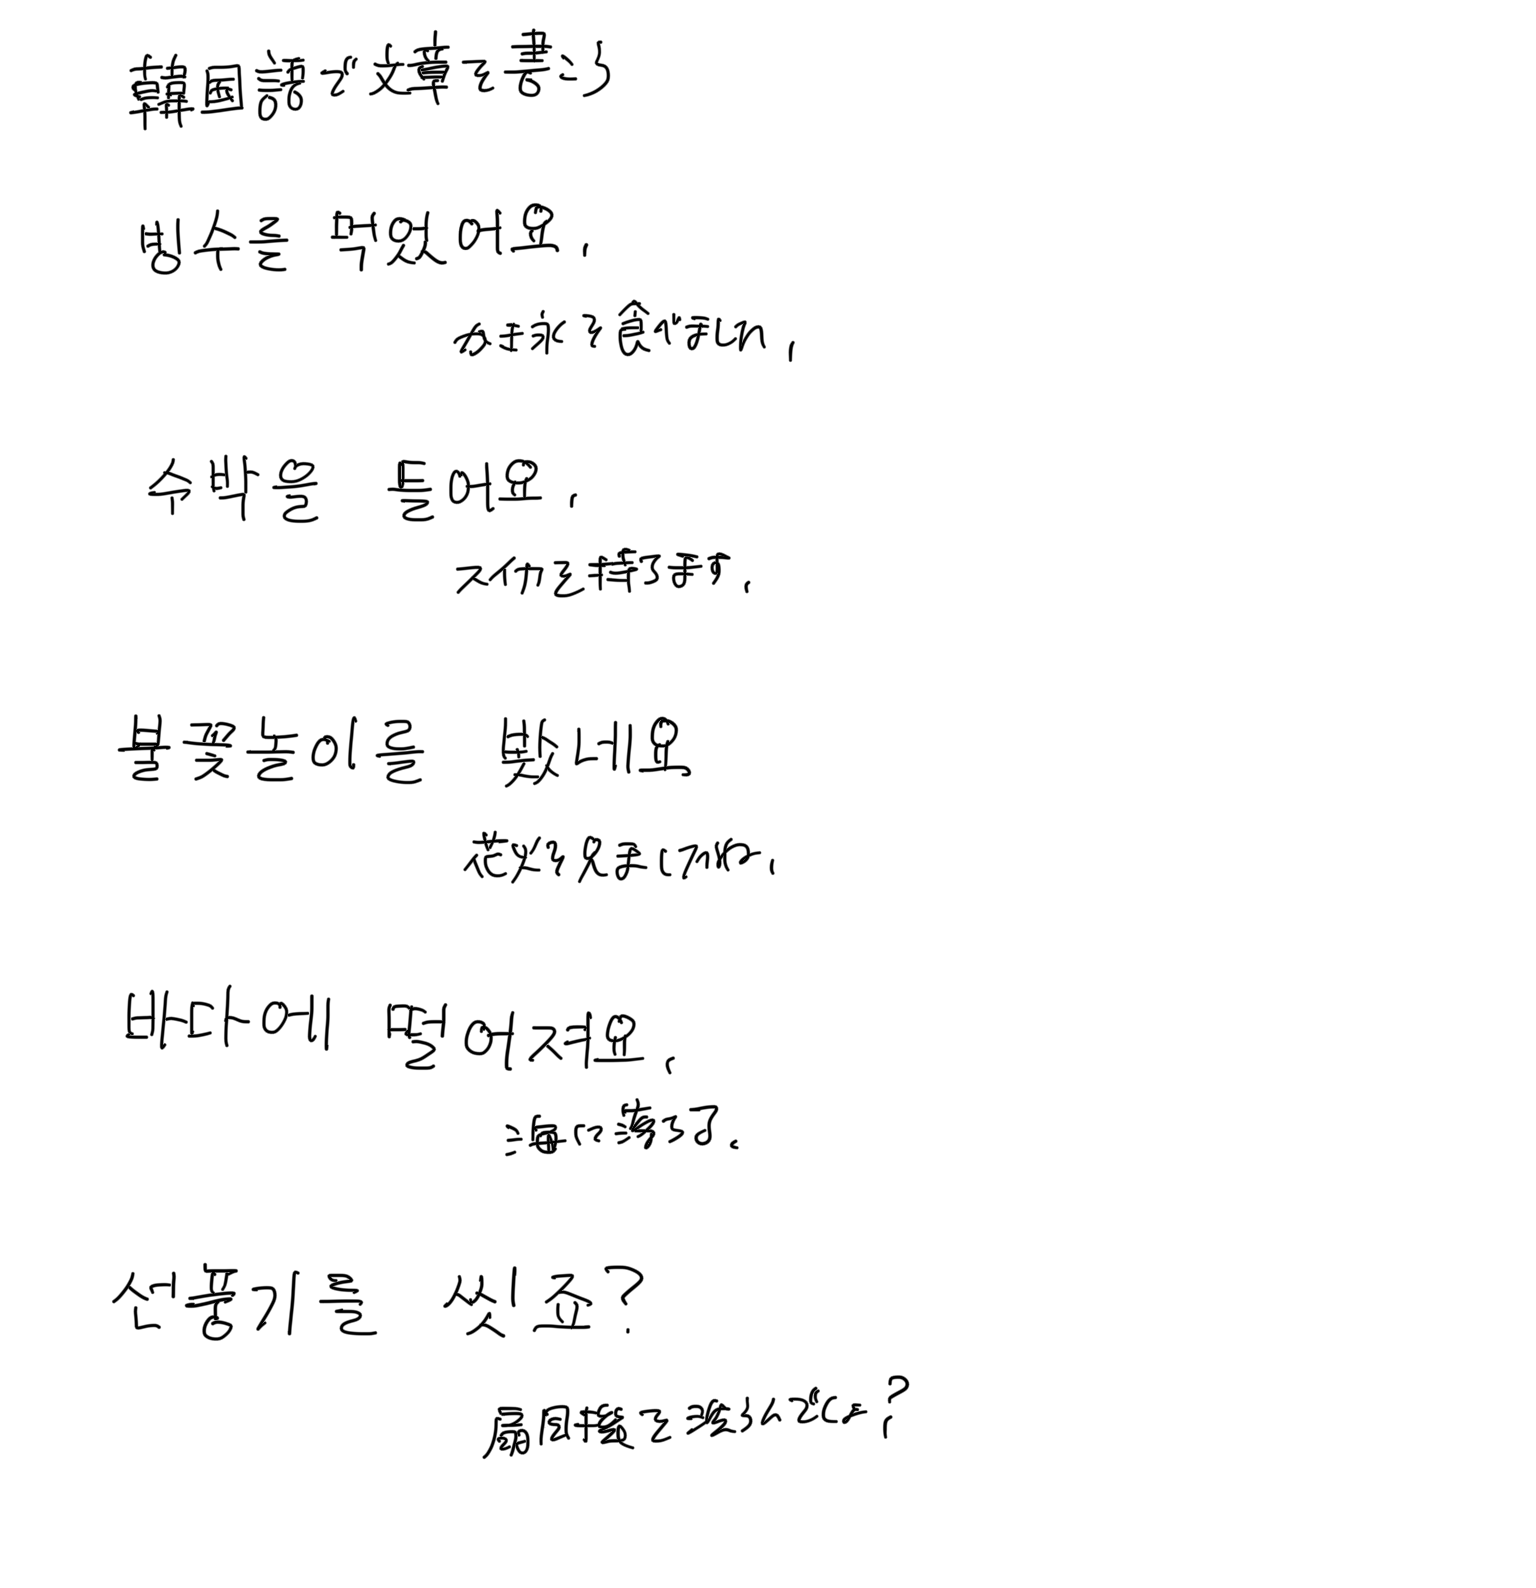 韓国語で文章を書こう
빙수를 먹었어요.
かき氷を食べました。
수박을 들어요.
スイカを持ちます。
불꽃놀이를 봤네요
花火を見ましたね。
바다에 떨어져요.
海に落ちるよ。
선풍기를 씻죠?
扇風機を洗うんでしょ?